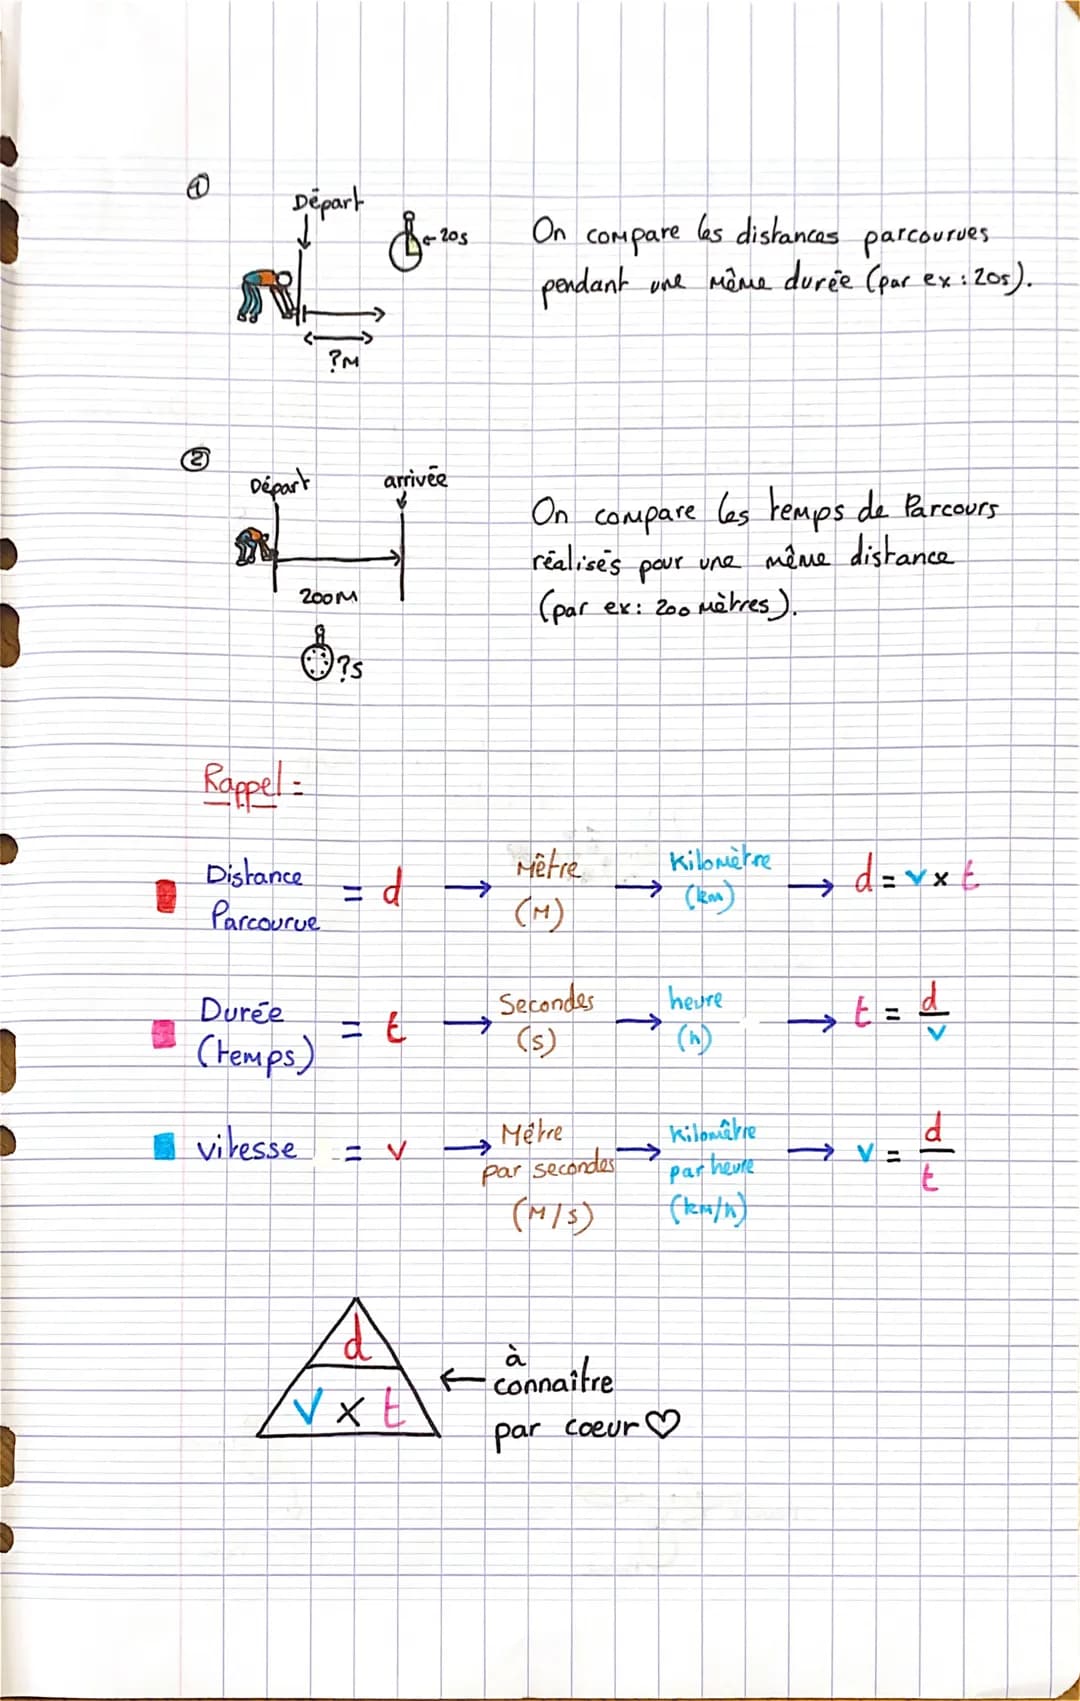 ①
Départ
←20s
On compare les distances parcourues
pendant une même durée (par ex : 20s).
?M
②
Départ
arrivée
On compare les temps de Parcours
réalisés pour une même distance
(par ex : 200 mètres).
200M
?s
Rappel :
Distance Parcourue = d → Mètre (M) → Kilomètre (km) → d = v x t
Durée (temps) = t → Secondes (s) → heure (h) → t = d/v
vitesse = v → Mètre par secondes (M/s) → Kilomètre par heure (km/h) → v = d/t
d
v x t
← à connaître
par coeur ♡